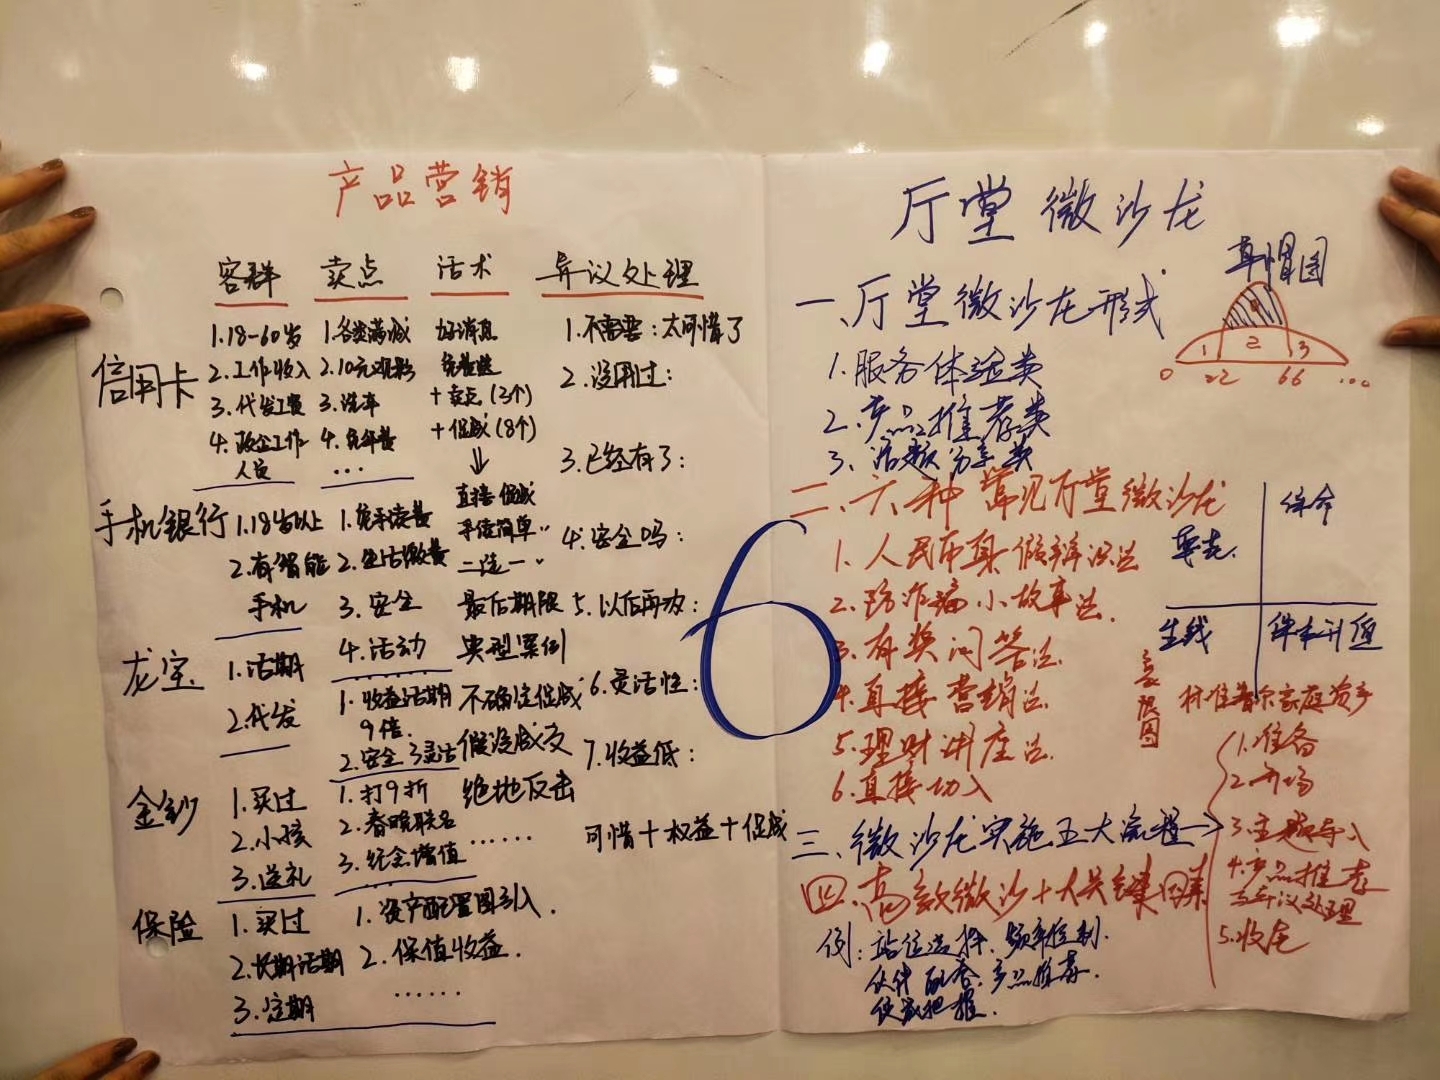 产品营销
客群 卖点 话术 异议处理
信用卡
1.18-60岁
2.工作收入
3.代发工资
4.政企工作
人员
1.各类满减
2.10元观影
3.洗车
4.免年费
...
好消息
+卖点(3个)
+促成(8个)
直接促成
手续简单
二选一
最后期限
典型案例
不确定促成
假设成交
绝地反击
......
1.不需要:太可惜了
2.没用过:
3.已经有了:
4.安全吗:
5.以后再办:
6.灵活性:
7.收益低:
可惜+权益+促成
手机银行
1.18岁以上
2.有智能
手机
1.免手续费
2.生活缴费
3.安全
4.活动
......
龙宝
1.活期
2.代发
1.收益活期
9倍.
2.安全 3灵活
金钞
1.买过
2.小孩
3.送礼
1.打9折
2.春晚联名
3.纪念增值
...
保险
1.买过
2.长期活期
3.定期
1.资产配置图引入.
2.保值收益.
......
6
厅堂微沙龙
草帽图
1 2 3
0 22 66 100
一、厅堂微沙龙形式
1.服务体验类
2.产品推荐类
3、话题分享类
二、六种常见厅堂微沙龙
1.人民币真假辨识法
2.防诈骗小故事法.
3.有奖问答法.
4.直接营销法.
5.理财讲座法.
6.直接切入
要花.
保命
生钱
保本升值
标准普尔家庭资产
象限图
三、微沙龙实施五大流程
1.准备
2.开场
3.主题导入
4.产品推荐
与异议处理
5.收尾
四、高效微沙十大关键因素
例:站位选择.频率控制.
伙伴配合.产品推荐.
促成把握.